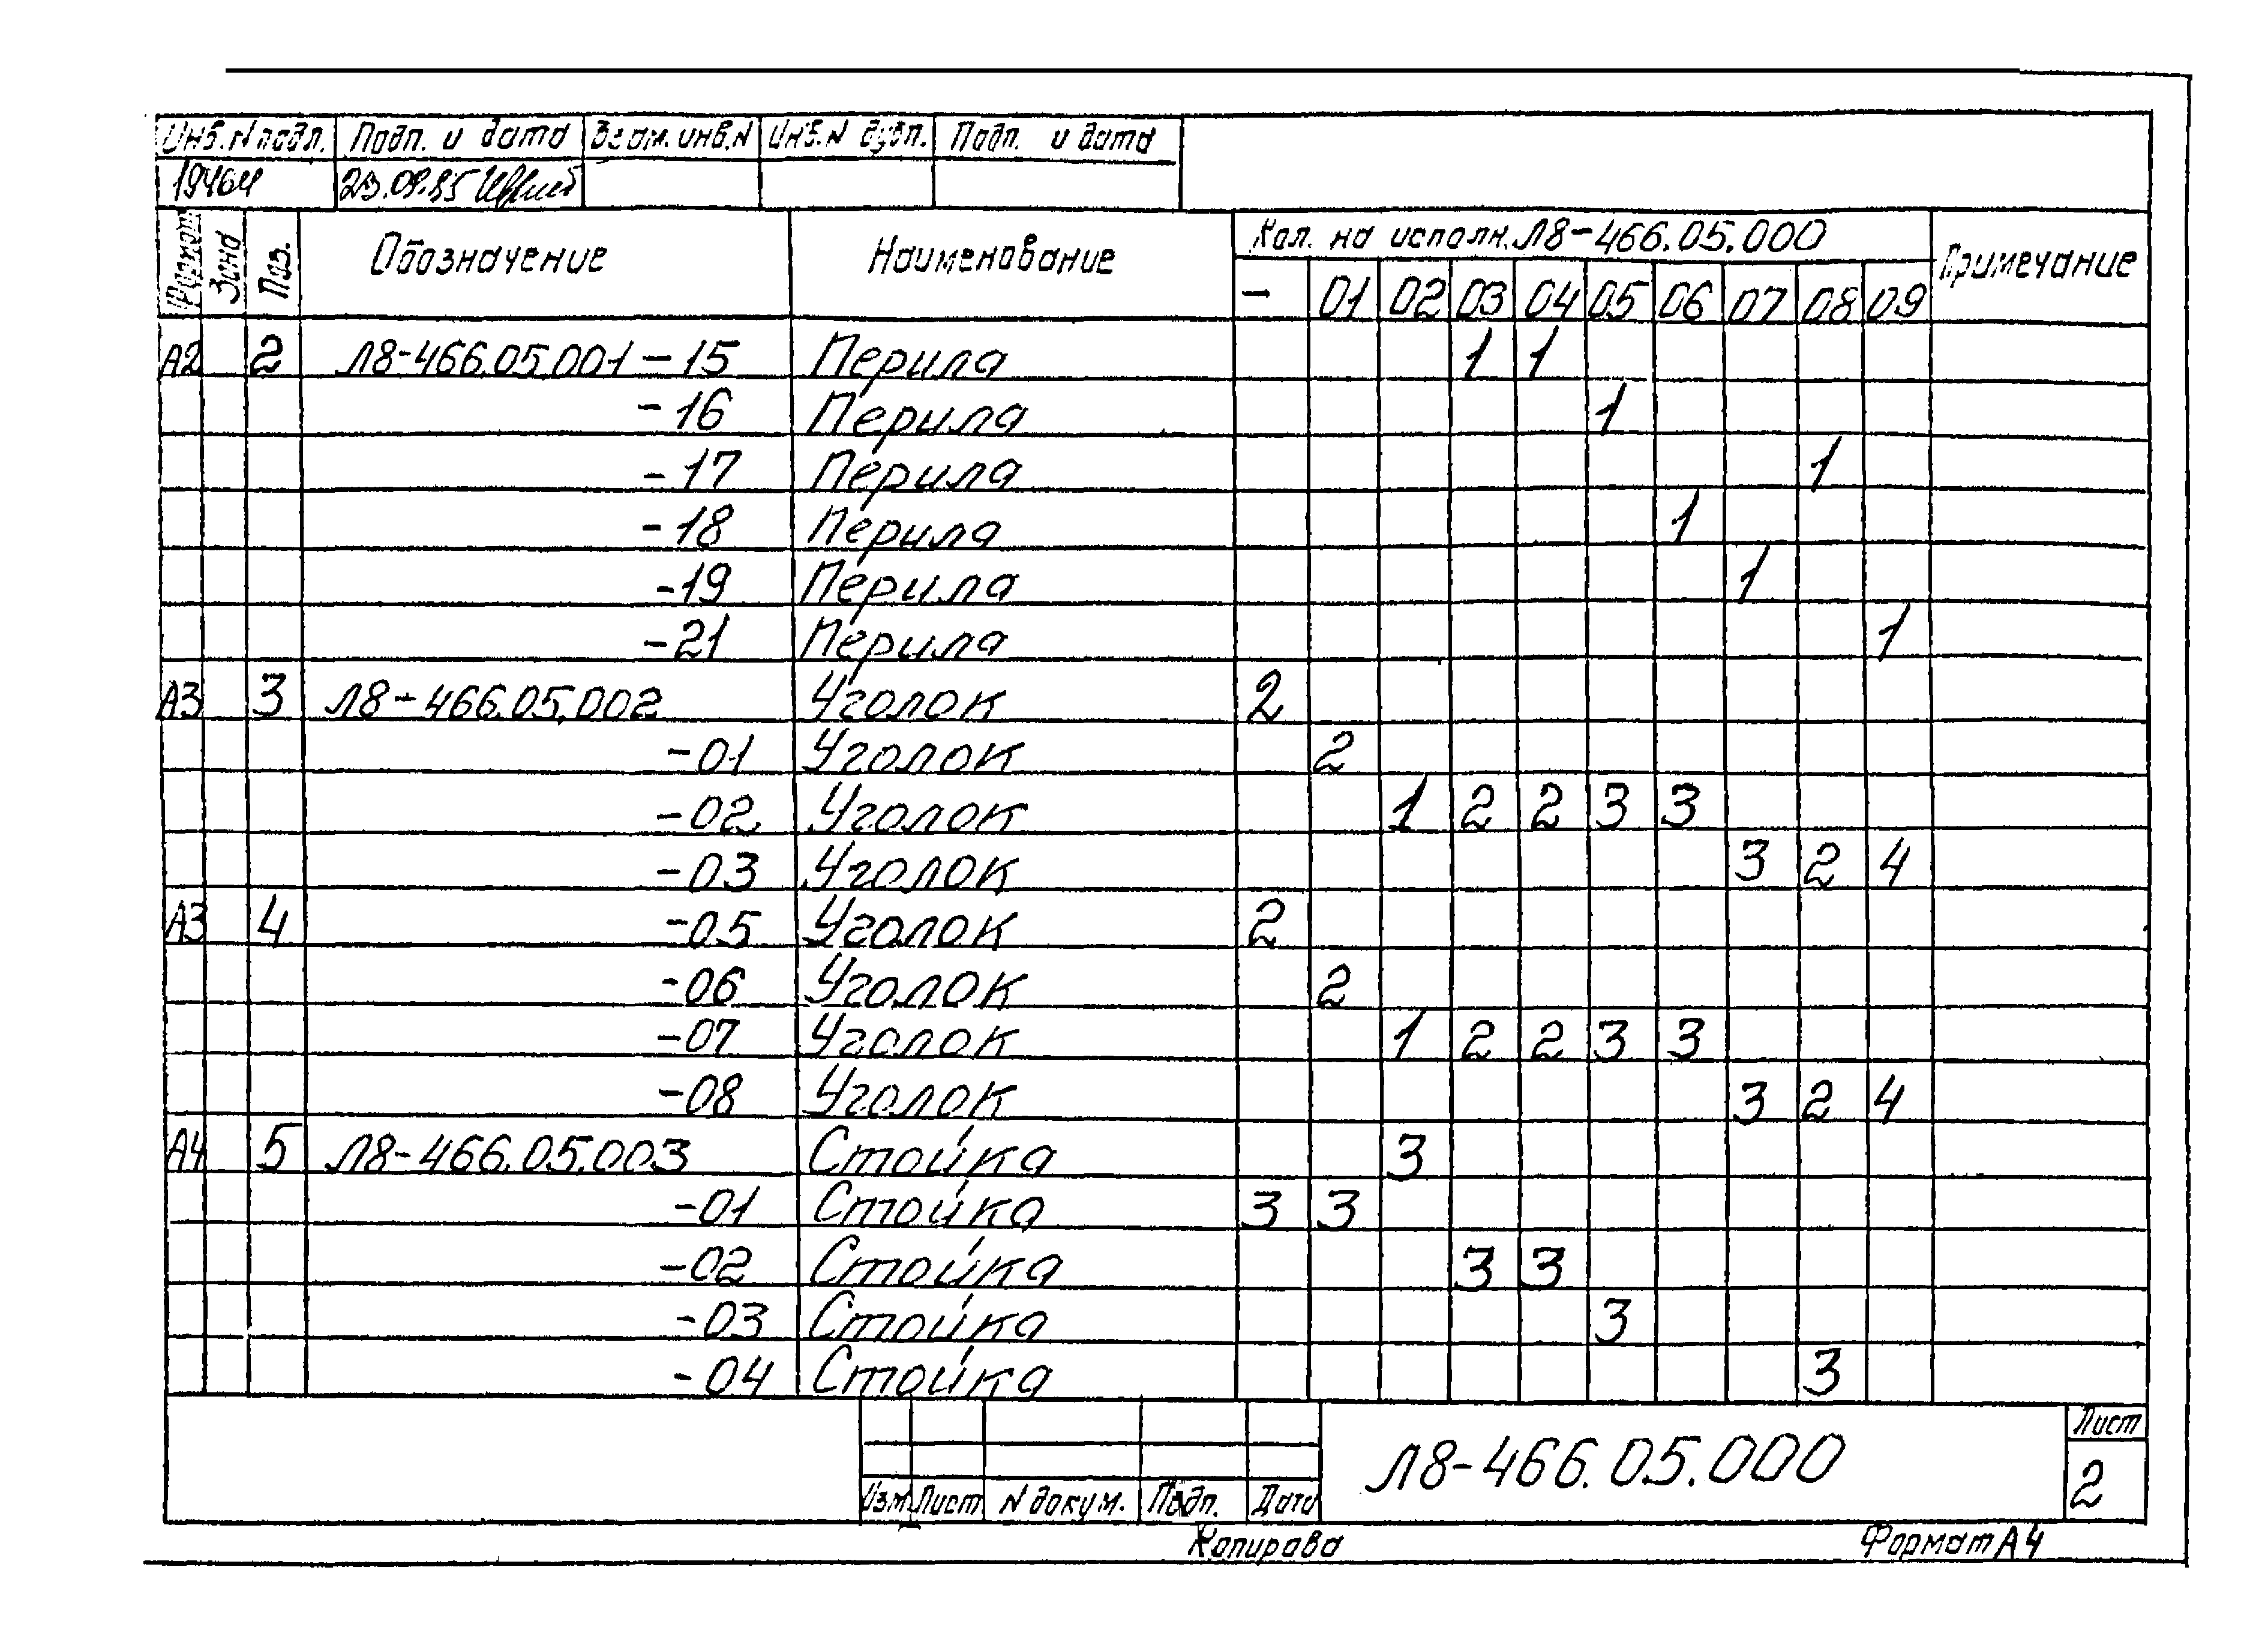 Инв.N подл. Подп. и дата Взам. инв.N Инв.N дубл. Подп. и дата
19464 23.09.85
Формат Зона Поз. Обозначение Наименование Кол. на исполн. Л8-466.05.000 Примечание
- 01 02 03 04 05 06 07 08 09
А2 2 Л8-466.05.001-15 Перила 1 1
-16 Перила 1
-17 Перила 1
-18 Перила 1
-19 Перила 1
-21 Перила 1
А3 3 Л8-466.05.002 Уголок 2
-01 Уголок 2
-02 Уголок 1 2 2 3 3
-03 Уголок 3 2 4
А3 4 -05 Уголок 2
-06 Уголок 2
-07 Уголок 1 2 2 3 3
-08 Уголок 3 2 4
А4 5 Л8-466.05.003 Стойка 3
-01 Стойка 3 3
-02 Стойка 3 3
-03 Стойка 3
-04 Стойка 3
Изм Лист N докум. Подп. Дата Л8-466.05.000 Лист 2
Копирова Формат А4